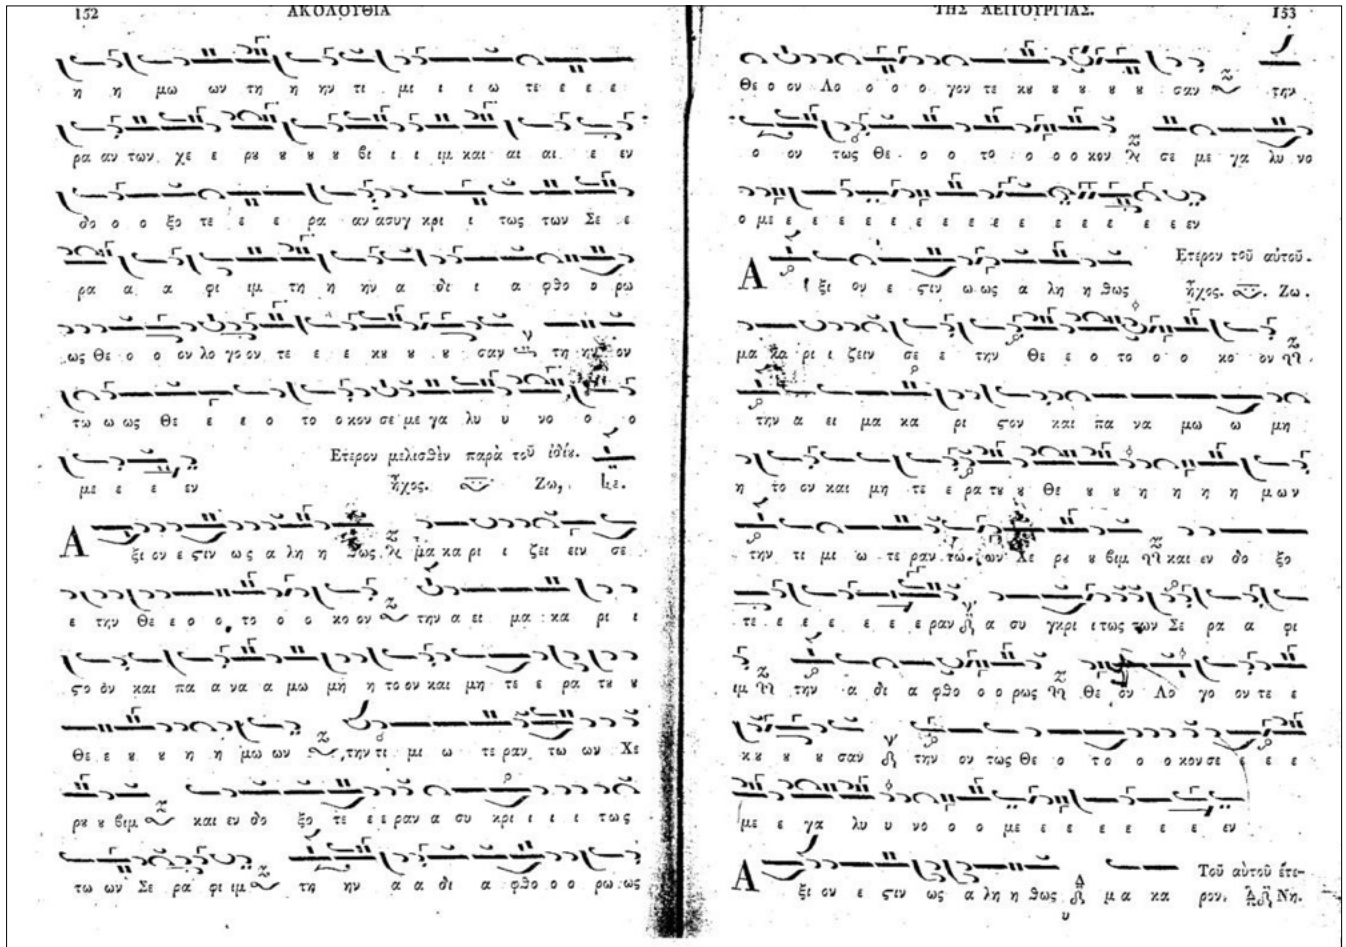 152 ΑΚΟΛΟΥΘΙΑ
η η μω ων τη η ην τι μι ι ι ω τε ε ε ε
ρα αν των χε ε ρȣ ȣ ȣ ȣ βι ι ι ιμ και αι αι ε εν
δο ο ο ξο τε ε ε ρα αν ασυγ κρι ι τως των Σε ε
ρα α α φι ιμ τη η ην α δι ι α φθο ο ρω
ως Θε ο ο ον λο γο ον τε ε ε κȣ ȣ ȣ ȣ σαν τη ην ον
τω ω ως Θε ε ε ο το ο κον σε με γα λυ υ νο ο ο
με ε ε εν
Ετερον μελισθὲν παρὰ τοῦ ἰδίȣ.
ἦχος. Ζω, Κε.
Α ξι ον ε ςιν ως α λη η θως μα κα ρι ι ζει ειν σε
ε την Θε ε ο ο το ο ο κο ον την α ει μα κα ρι ι
ςο ον και πα α να α μω μη η το ον και μη τε ε ρα τȣ ȣ
Θε ε ȣ ȣ η η μω ων την τι μι ω τε ραν τω ων Χε
ρȣ ȣ βιμ και εν δο ξο τε ε ε ραν α συ κρι ι ι ι τως
τω ων Σε ρα φι ιμ τη ην α α δι α φθο ο ο ρω ως
ΤΗΣ ΛΕΙΤΟΥΡΓΙΑΣ. 153
Θε ο ον Λο ο ο ο γον τε κȣ ȣ ȣ ȣ ȣ σαν την
ο ον τως Θε ο ο το ο ο ο κον σε με γα λυ νο
ο με ε ε ε ε ε ε ε ε ε ε ε ε ε ε εν
Ετερον τοῦ αὐτοῦ.
Α ξι ον ε ςιν ω ως α λη η θως
ἦχος. Ζω.
μα κα ρι ι ζειν σε ε την Θε ε ο το ο ο κο ον
την α ει μα κα ρι ςον και πα να μω ω μη
η το ον και μη τε ε ρα τȣ ȣ Θε ȣ ȣ η η η η μων
την τι μι ω τε ραν τω ων Χε ρȣ ȣ βιμ και εν δο ξο
τε ε ε ε ε ε ε ραν α συ γκρι ι τως των Σε ρα α φι
ιμ την α δι α φθο ο ο ρως Θε ον Λο γο ον τε ε
κȣ ȣ ȣ σαν την ον τως Θε ο το ο ο κον σε ε ε ε
με ε γα λυ υ νο ο ο με ε ε ε ε ε ε εν
Α ξι ον ε ςιν ως α λη η θως μα κα
Τοῦ αὐτοῦ ἕτε-
ρον. Νη.